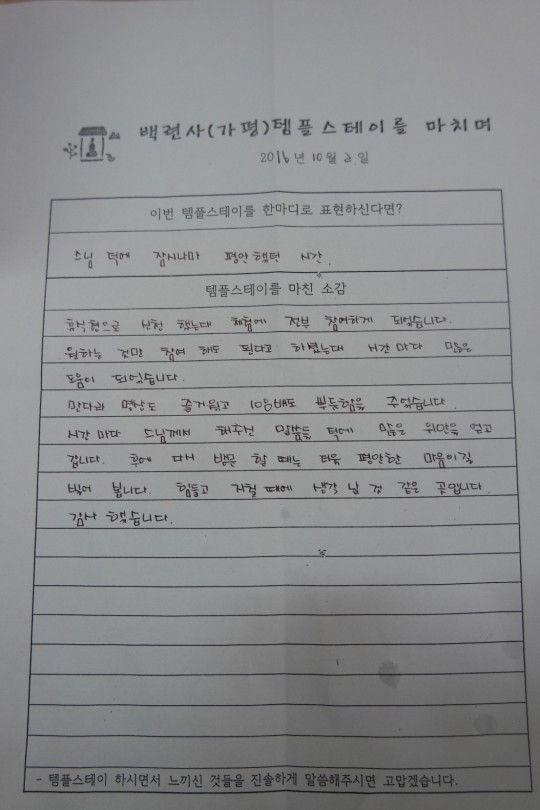 백련사(가평)템플스테이를 마치며
2016년 10월 2일
이번 템플스테이를 한마디로 표현하신다면?
스님 덕에 잠시나마 평안했던 시간.
템플스테이를 마친 소감
휴식형으로 신청 했는데 체험에 전부 참여하게 되었습니다.
원하는 것만 참여 해도 된다고 하셨는데 시간마다 많은
도움이 되었습니다.
만다라 명상도 즐거웠고 108배도 뿌듯함을 주었습니다.
시간마다 스님께서 해주신 말씀들 덕에 많은 위안을 얻고
갑니다. 후에 다시 방문 할 때는 더욱 평안한 마음이길
빌어 봅니다. 힘들고 지칠 때에 생각 날 것 같은 곳입니다.
감사 했습니다.
- 템플스테이 하시면서 느끼신 것들을 진솔하게 말씀해주시면 고맙겠습니다.